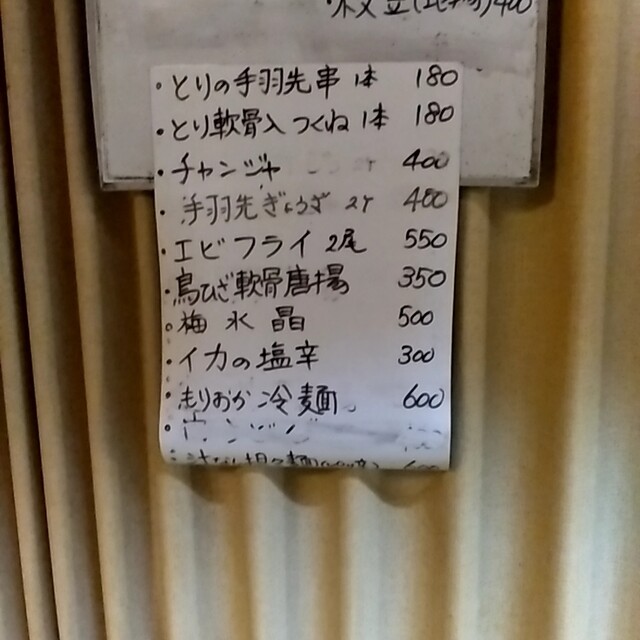 枝豆(地物)400
・とりの手羽先串 1本 180
・とり軟骨入つくね 1本 180
・チャンジャ 400
・手羽先ぎょうざ 2ケ 400
・エビフライ 2尾 550
・鳥ひざ軟骨唐揚 350
・梅水晶 500
・イカの塩辛 300
・もりおか冷麺 600